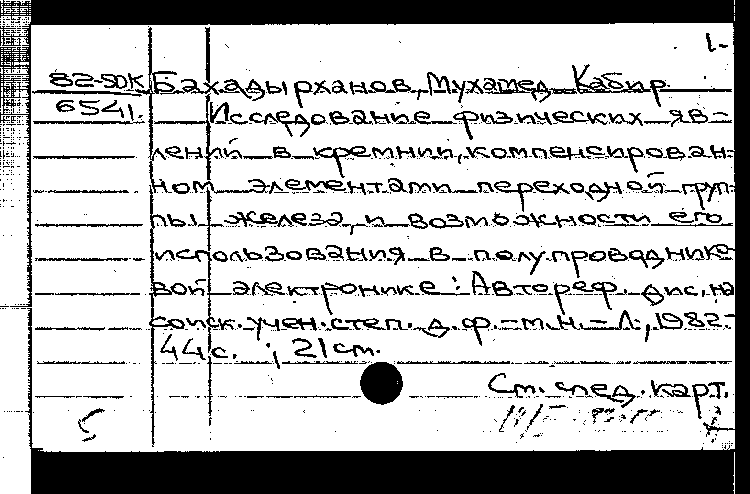 1.
82-50К Бахадырханов, Мухамед Кабир
6541. Исследование физических яв-
лений в кремнии, компенсирован-
ном элементами переходной груп-
пы железа, и возможности его
использования в полупроводнико-
вой электронике : Автореф. дис. на
соиск. учен. степ. д. ф.-м. н. - Л., 1982.-
44 с. ; 21 см.
См. след. карт.
5